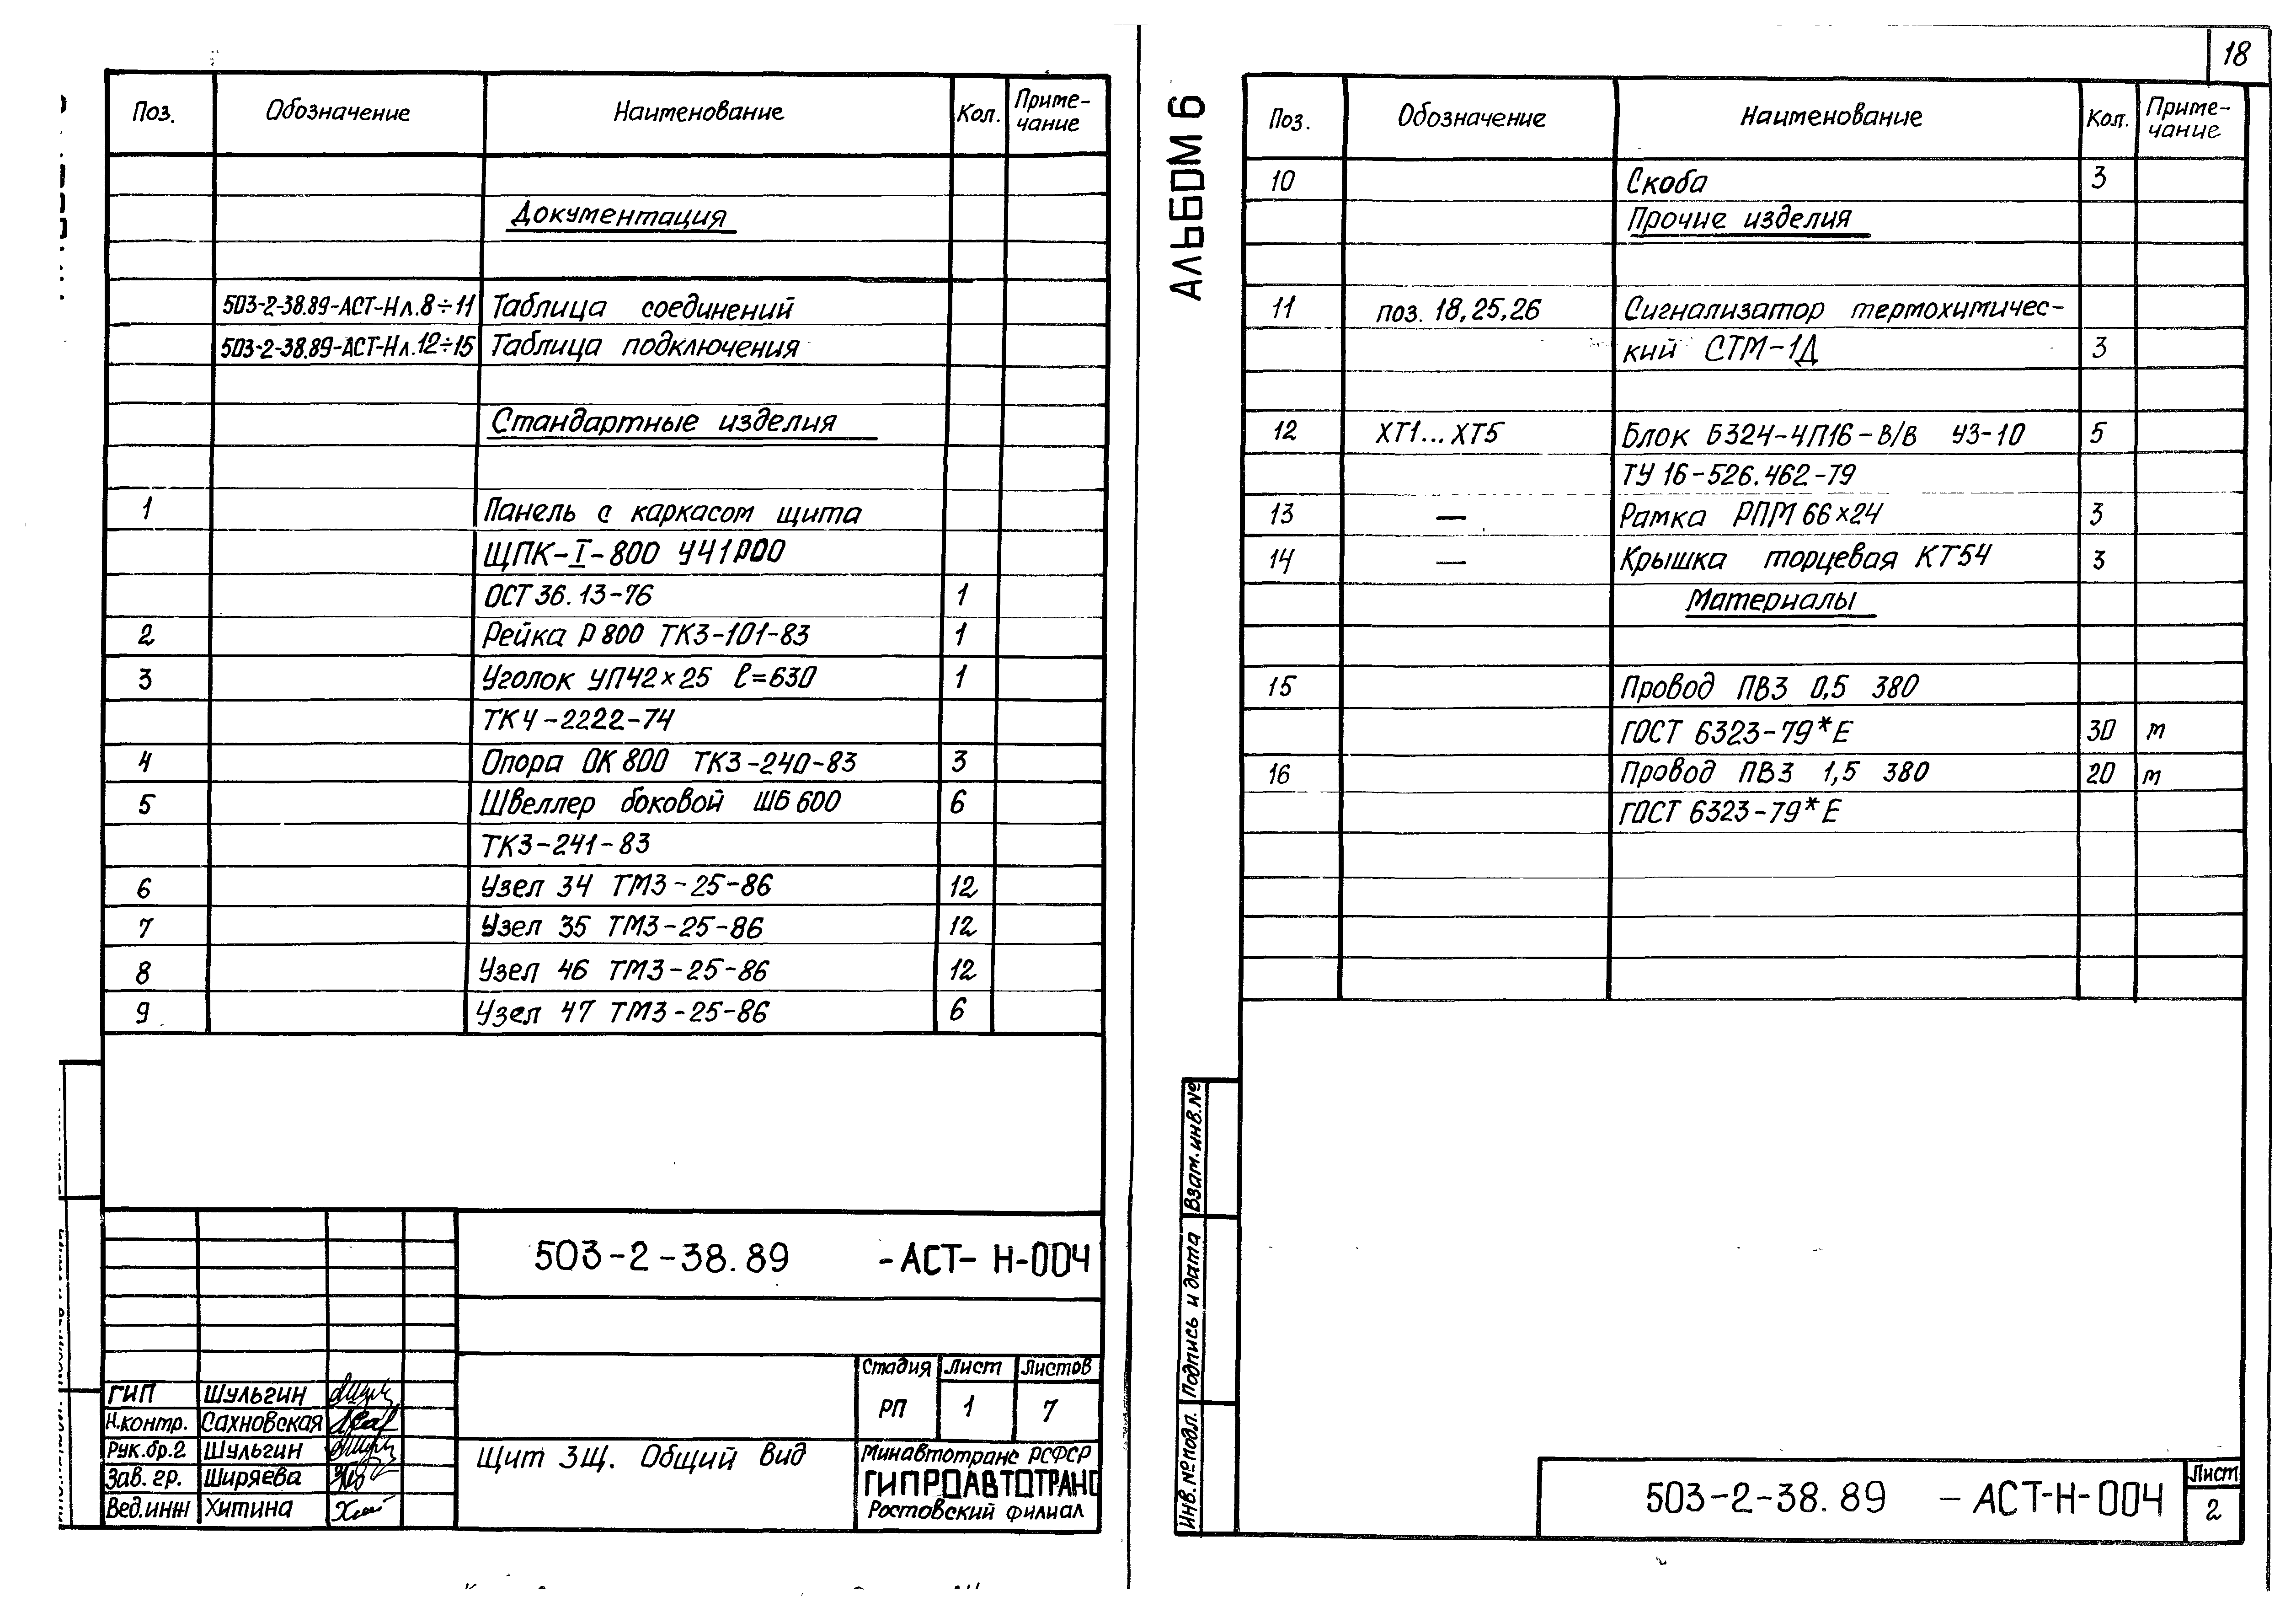 Поз. Обозначение Наименование Кол. Приме-
чание
Документация
503-2-38.89-АСТ-Н л.8÷11 Таблица соединений
503-2-38.89-АСТ-Н л.12÷15 Таблица подключения
Стандартные изделия
1 Панель с каркасом щита
ЩПК-I-800 УЧ1Р00
ОСТ 36.13-76 1
2 Рейка Р800 ТК3-101-83 1
3 Уголок УП42×25 ℓ=630 1
ТК4-2222-74
4 Опора ОК 800 ТК3-240-83 3
5 Швеллер боковой ШБ 600 6
ТК3-241-83
6 Узел 34 ТМ3-25-86 12
7 Узел 35 ТМ3-25-86 12
8 Узел 46 ТМ3-25-86 12
9 Узел 47 ТМ3-25-86 6
503-2-38.89 -АСТ-Н-004
Стадия Лист Листов
РП 1 7
ГИП Шульгин
Н.контр. Сахновская
Рук.бр.2 Шульгин
Зав. гр. Ширяева
Вед.инж Хитина
Щит 3Щ. Общий вид
Минавтотранс РСФСР
ГИПРОАВТОТРАНС
Ростовский филиал
18
АЛЬБОМ 6
Поз. Обозначение Наименование Кол. Приме-
чание
10 Скоба 3
Прочие изделия
11 поз. 18,25,26 Сигнализатор термохимичес-
кий СТМ-1Д 3
12 ХТ1...ХТ5 Блок Б324-4П16-В/В У3-10 5
ТУ 16-526.462-79
13 — Рамка РПМ 66×24 3
14 — Крышка торцевая КТ54 3
Материалы
15 Провод ПВ3 0,5 380
ГОСТ 6323-79*Е 30 м
16 Провод ПВ3 1,5 380 20 м
ГОСТ 6323-79*Е
Взам.инв.№
Подпись и дата
Инв.№подл.
503-2-38.89 -АСТ-Н-004
Лист
2